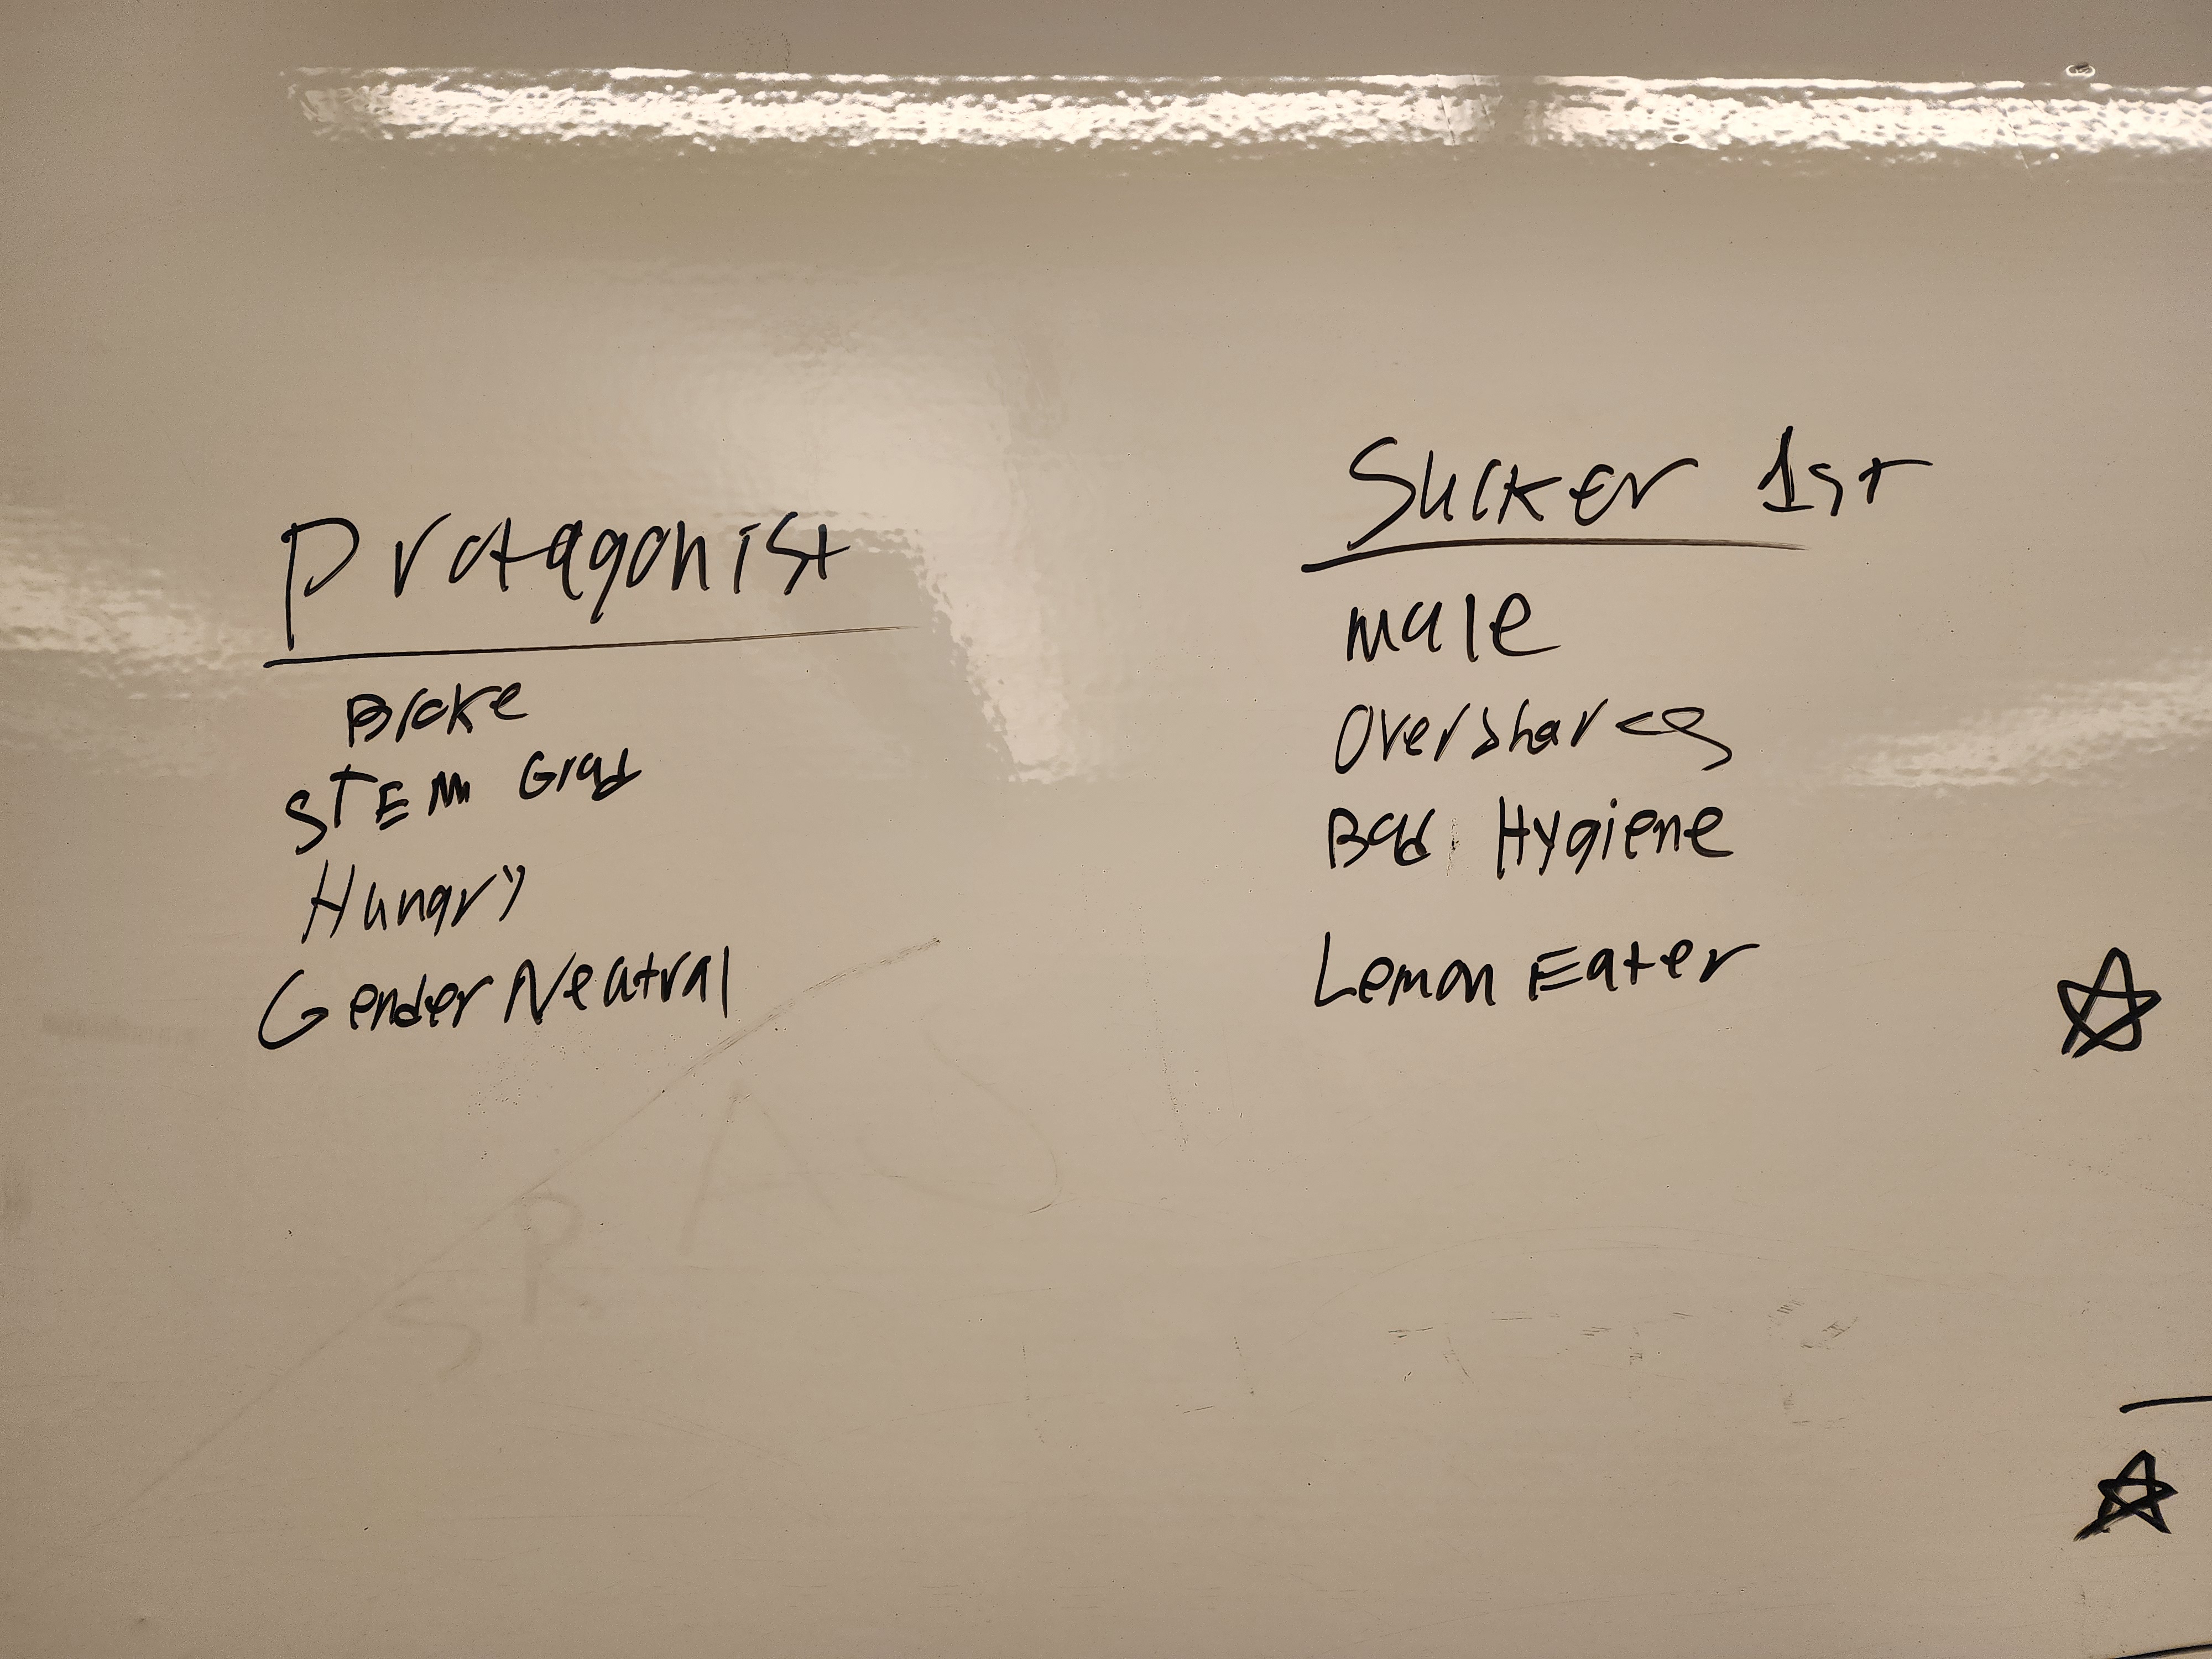 Protagonist
Broke
STEM Grad
Hungry
Gender Neutral
Sucker 1st
Male
Overshares
Bad Hygiene
Lemon Eater